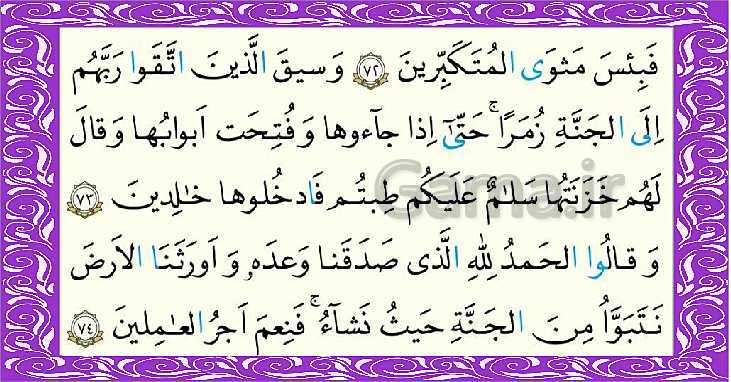 فَبِئسَ مَثوَى المُتَكَبِّرينَ ﴿٧٢﴾ وَ سیقَ الَّذینَ اتَّقَوا رَبَّهُم
اِلَى الجَنَّةِ زُمَرًا ۚ حَتّیٰٓ اِذا جآءوها وَ فُتِحَت اَبوابُها وَ قالَ
لَهُم خَزَنَتُها سَلٰمٌ عَلَيكُم طِبتُم فَادخُلوها خٰلِدینَ ﴿٧٣﴾
وَ قالُوا الحَمدُ لِلّٰهِ الَّذی صَدَقَنا وَعدَه‌ۥ وَ اَورَثَنَا الاَرضَ
نَتَبَوَّاُ مِنَ الجَنَّةِ حَيثُ نَشآءُ ۚ فَنِعمَ اَجرُ العٰمِلینَ ﴿٧٤﴾
Gama.ir